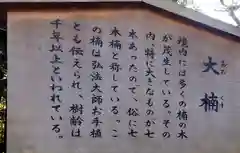 大楠
おおくす
境内には多くの楠の木
が茂生している。その
内特に大きなものが七
本あったので、俗に七
本楠と称している。こ
の楠は弘法大師お手植
とも伝えられ、樹齢は
千年以上といわれている。